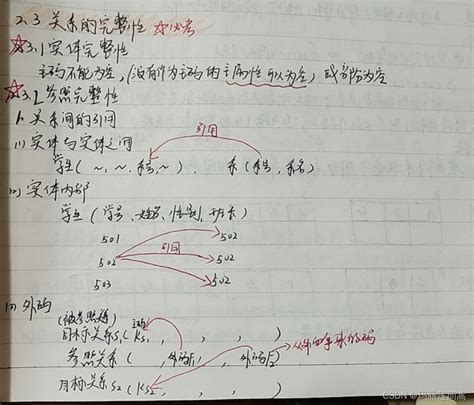 2.3 关系的完整性 ☆必考
☆3.1 实体完整性
主码不能为空,(没有作为主码的主属性可以为空)或部分为空
☆3.2 参照完整性
1. 关系间的引用
(1) 实体与实体之间
引用
学生(~,~,系号,~)、系(系号,系名)
(2) 实体内部
学生(学号、姓名、性别、班长)
501 502
502 引用 502
503 502
(3) 外码
(被参照关系) 主码
目标关系S1(Ks1, , , )
参照关系( , 外码F1, , 外码F2)
目标关系S2(Ks2, , , )